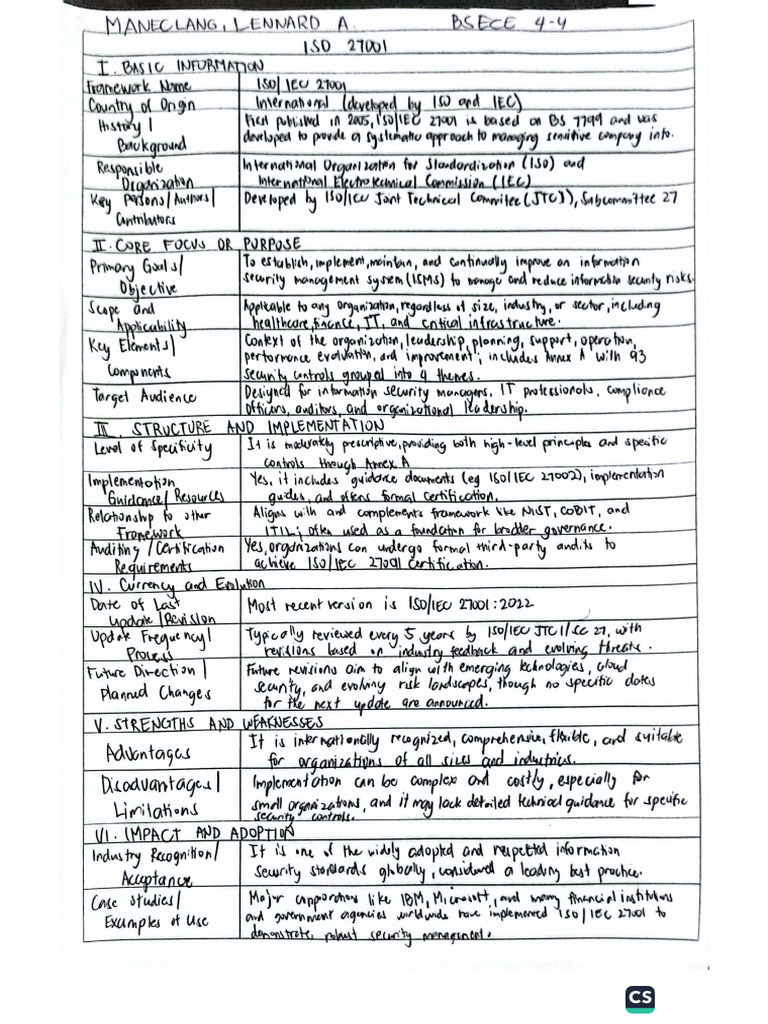 MANECLANG, LENNARD A. BSECE 4-4
ISO 27001
I. BASIC INFORMATION
Framework Name ISO/IEC 27001
Country of Origin International (developed by ISO and IEC)
History / First published in 2005, ISO/IEC 27001 is based on BS 7799 and was
Background developed to provide a systematic approach to managing sensitive company info.
Responsible International Organization for Standardization (ISO) and
Organization International Electrotechnical Commission (IEC)
Key Persons/Authors/ Developed by ISO/IEC Joint Technical Commitee (JTC1), Subcommittee 27
Contributors
II. CORE FOCUS OR PURPOSE
Primary Goals/ To establish, implement, maintain, and continually improve an information
Objective security management system (ISMS) to manage and reduce information security risks.
Scope and Applicable to any organization, regardless of size, industry, or sector, including
Applicability healthcare, finance, IT, and critical infrastructure.
Key Elements/ Context of the organization, leadership, planning, support, operation,
Components performance evaluation, and improvement; includes Annex A with 93
security controls grouped into 4 themes.
Target Audience Designed for information security managers, IT professionals, compliance
officers, auditors, and organizational leadership.
III. STRUCTURE AND IMPLEMENTATION
Level of Specificity It is moderately prescriptive, providing both high-level principles and specific
controls through Annex A
Implementation Yes, it includes guidance documents (eg ISO/IEC 27002), implementation
Guidance/Resources guides, and offers formal certification.
Relationship to other Aligns with and complements framework like NIST, COBIT, and
Framework ITIL; often used as a foundation for broader governance.
Auditing/Certification Yes, organizations can undergo formal third-party audits to
Requirements achieve ISO/IEC 27001 certification.
IV. Currency and Evolution
Date of Last Most recent version is ISO/IEC 27001:2022
Update/Revision
Update Frequency/ Typically reviewed every 5 years by ISO/IEC JTC 1/SC 27, with
Process revisions based on industry feedback and evolving threats.
Future Direction/ Future revisions aim to align with emerging technologies, cloud
Planned Changes security, and evolving risk landscapes, though no specific dates
for the next update are announced.
V. STRENGTHS AND WEAKNESSES
Advantages It is internationally recognized, comprehensive, flexible, and suitable
for organizations of all sizes and industries.
Disadvantages/ Implementation can be complex and costly, especially for
Limitations small organizations, and it may lack detailed technical guidance for specific
security controls.
VI. IMPACT AND ADOPTION
Industry Recognition/ It is one of the widely adopted and respected information
Acceptance security standards globally, considered a leading best practice.
Case Studies/ Major corporations like IBM, Microsoft, and many financial institutions
Examples of Use and government agencies worldwide have implemented ISO/IEC 27001 to
demonstrate robust security management.
CS